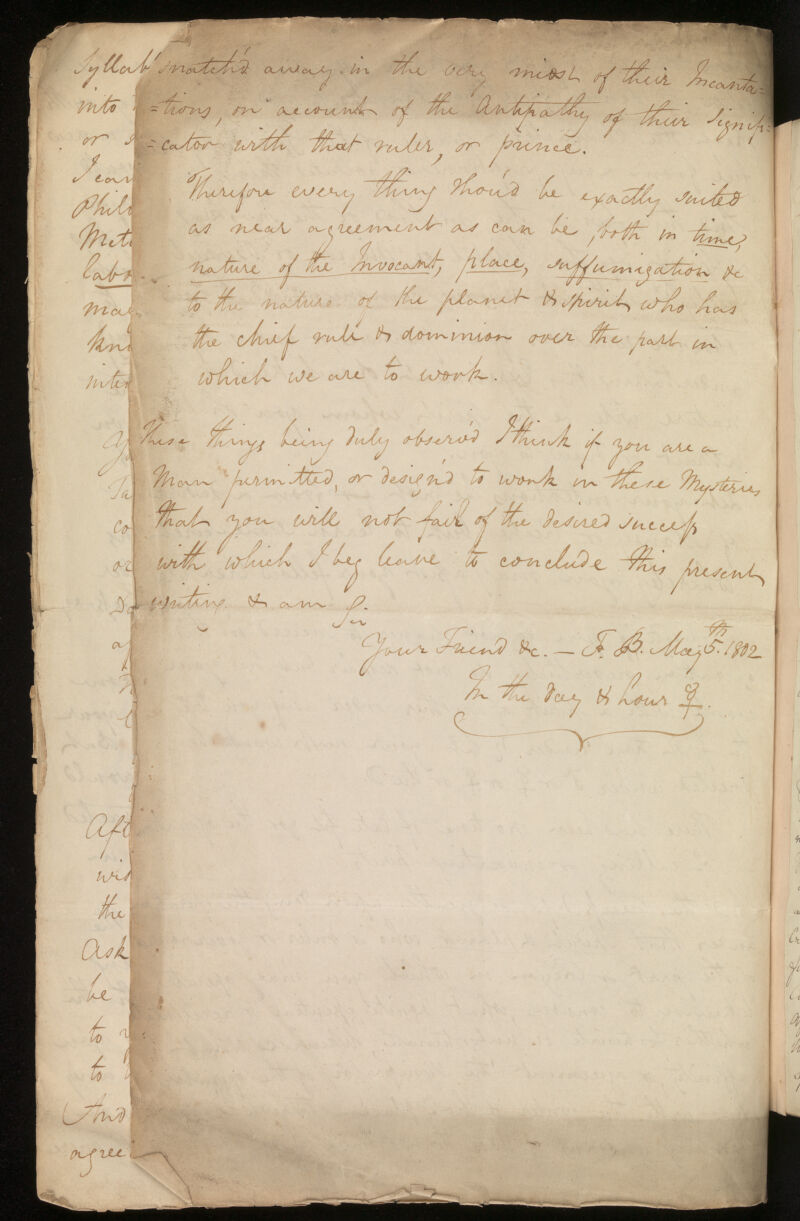 snatch'd away in the very midst of their Incanta=
=tions, on account of the Antipathy of their Signifi=
=cator with that ruler, or prince.
Therefore every thing shou'd be exactly suited
as near agreement as can be, both in time,
nature of the Invocant, place, suffumigation &c
to the nature of the planet & spirit who has
the chief rule & dominion over the part in
which we are to work.
These things being duly observ'd I think if you are a
Man permitted, or design'd to work in these Mysteries
that you will not fail of the desired success
with which I beg leave to conclude this present
writing & am Sir
Your Friend &c. — F. B. May 5th. 1802
In the day & hour ☿.
Syllab
into
or
I can
Phil
Met
labo
may
kno
inter
co
or
Aft
wis
the
Ask
be
to
to
And
agree